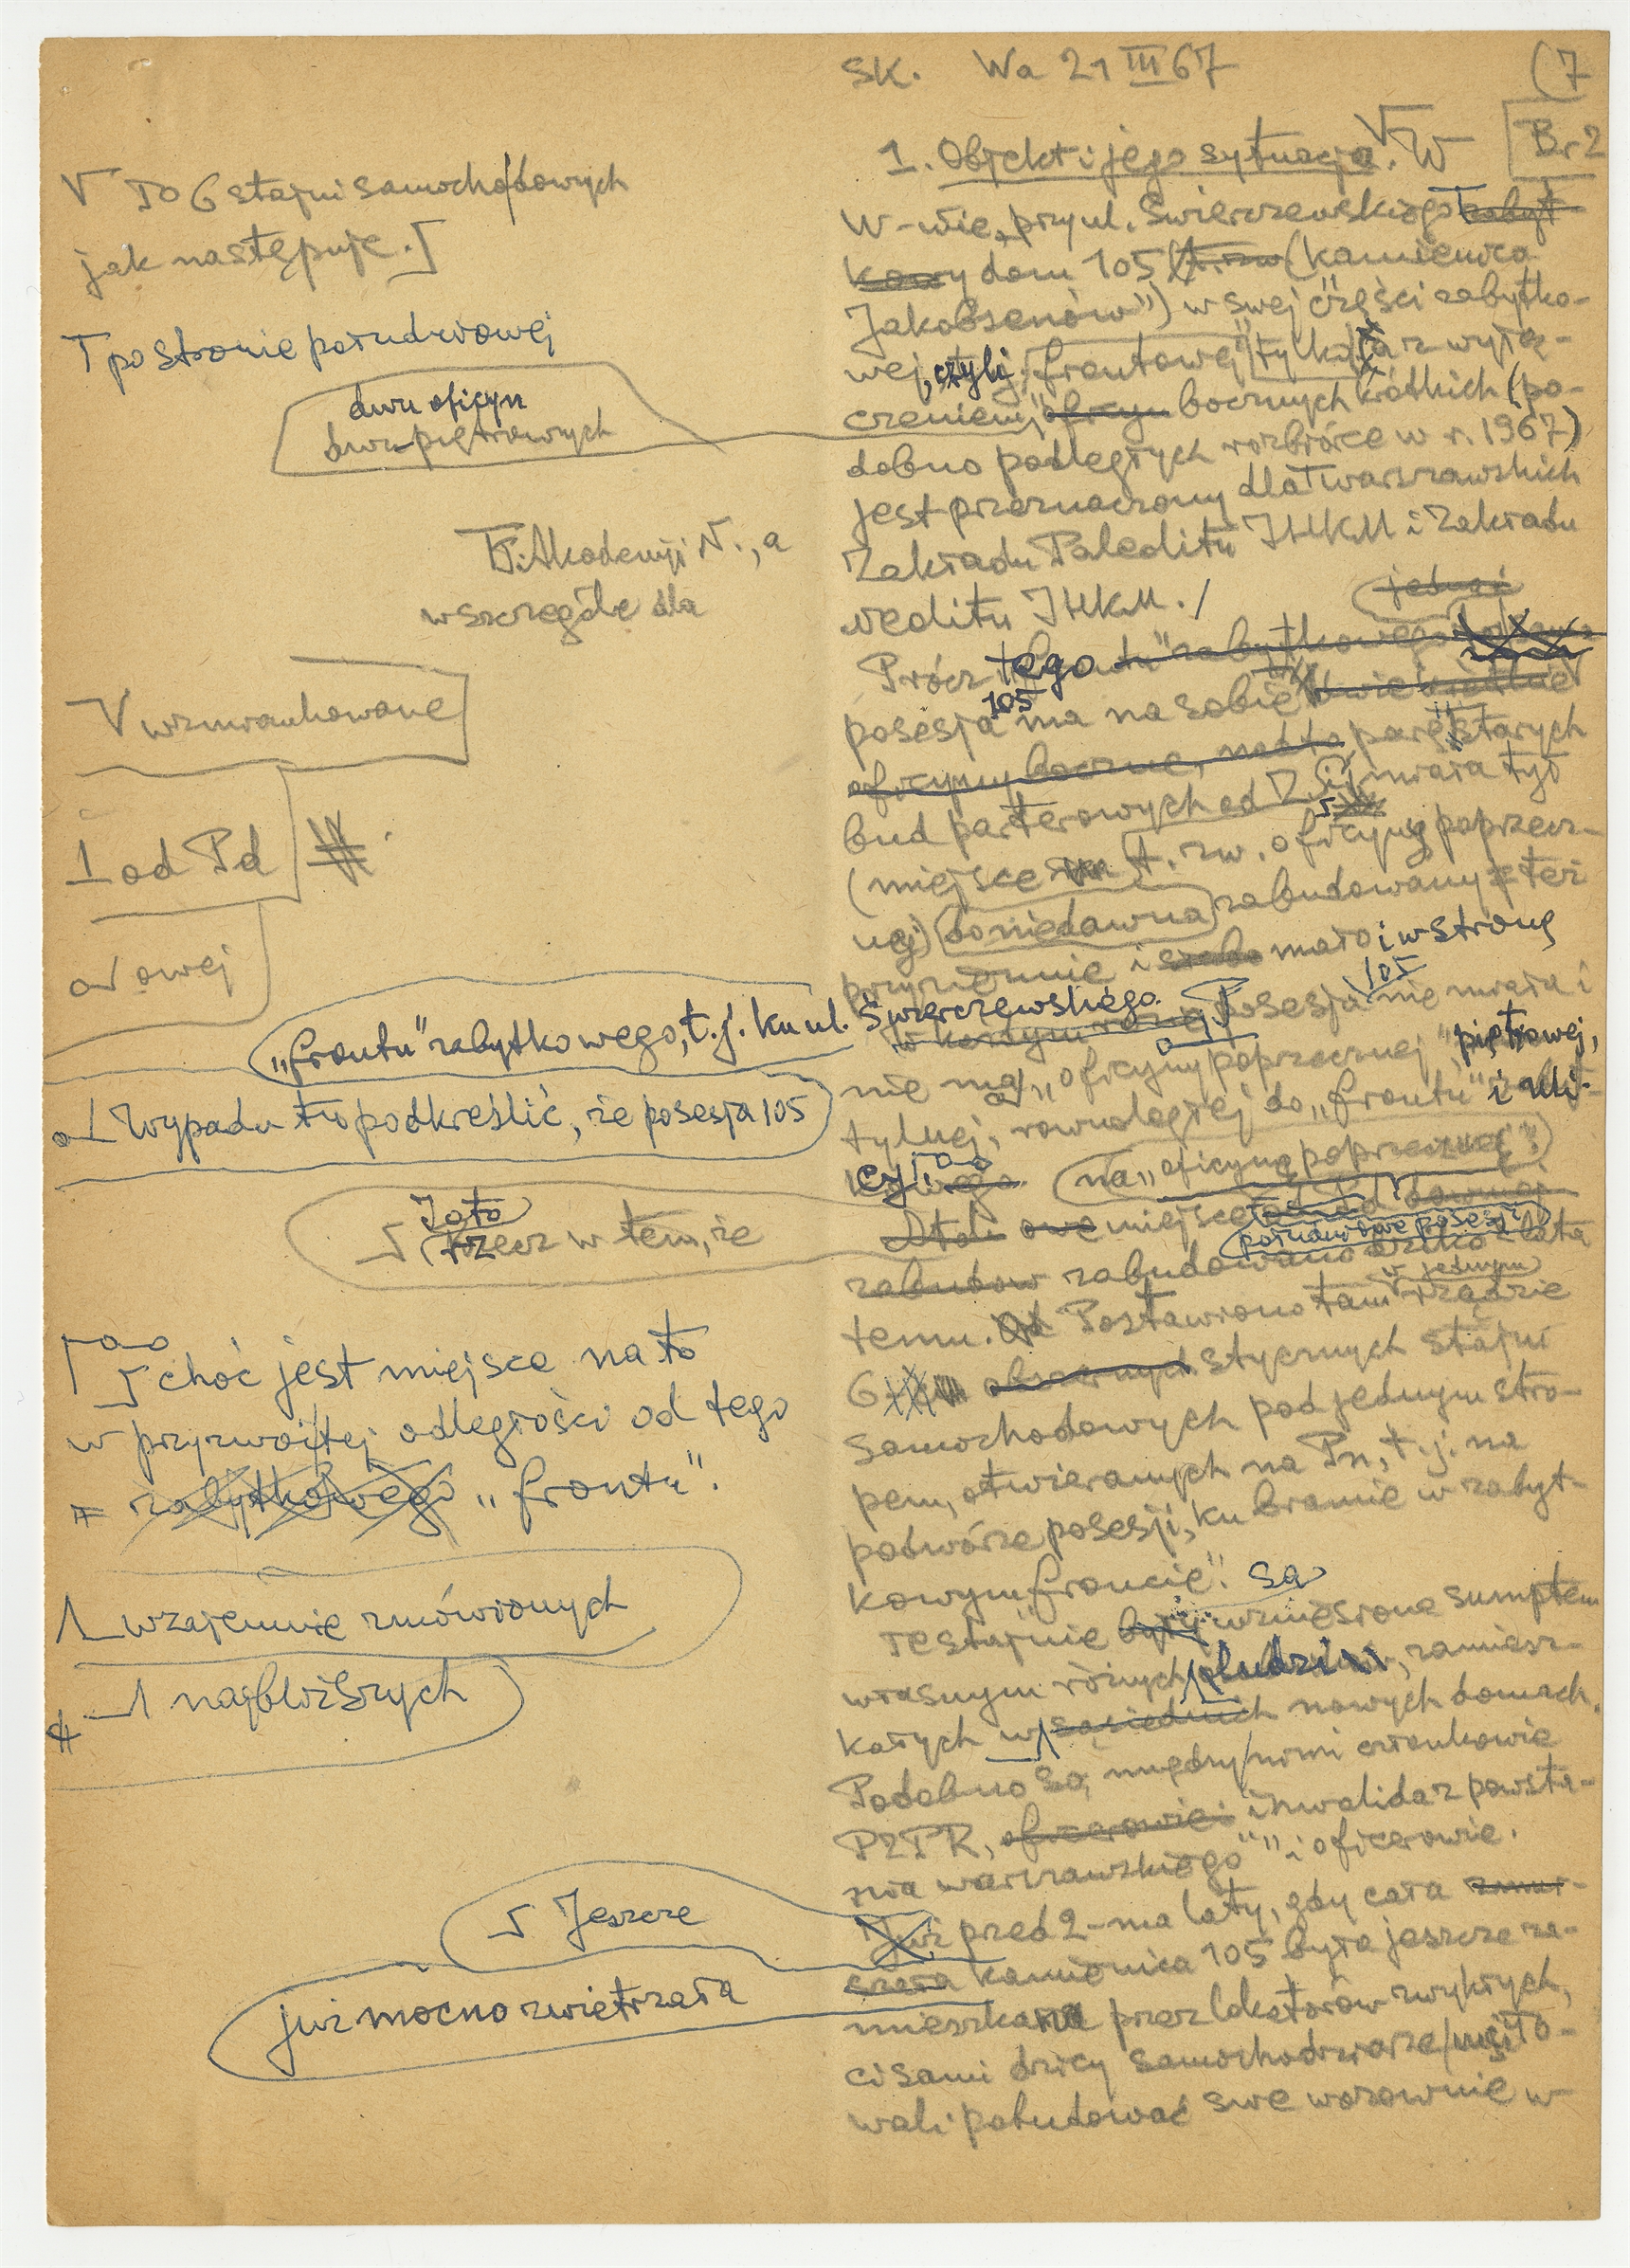 SK. Wa 21 III 67 (7
Br 2
1. Objekt i jego sytuacja. W
W-wie, przy ul. Świerczewskiego zabyt
kowy dom 105 (kamienica
Jakobsenów") w swej części zabytko-
wej, czyli „frontowej" tylko, z wyłą-
czeniem oficyn bocznych krótkich (po-
dobno podległych rozbiórce w r. 1967)
jest przeznaczony dla warszawskich
Zakładu Paleolitu IHKM i Zakładu
Neolitu IHKM. /
jednej
Prócz tego „frontu" zabytkowego
posesja 105 ma na sobie dwie
oficyny boczne, nadto parę starych
bud parterowych od
miała tył
(miejsce t. zw. oficyny poprzecz-
nej) doniedawna zabudowany też
przyziemnie i słabo mało i w stronę
w każdym razie posesja 105 nie miała i
nie ma „oficyny poprzecznej" piętrowej,
tylnej, równoległej do „frontu" i uli-
cy.
na „oficynę poprzeczną".
Otóż owe miejsce od Pd dawniej
południowe posesji
zabudow zabudowano lata
temu. Postawiono tam w jednym rzędzie
6 obszernych stycznych stajni
samochodowych pod jednym stro-
pem, otwieranych na Pn, t.j. na
podwórze posesji, ku bramie w zabyt-
kowym froncie".
Te stajnie były są wzniesione sumptem
własnym różnych ludzi, zamiesz-
kałych w sąsiednich nowych domach.
Podobno są między nimi członkowie
PZPR, oficerowie i inwalida z powsta-
nia warszawskiego" i oficerowie.
Już przed 2-ma laty, gdy cała
kamienica 105 była jeszcze za-
mieszkana przez lokatorów zwykłych,
ci sami dzicy samochodziarze usiło-
wali pobudować swe wozownie w
TO 6 stajni samochodowych
jak następuje.]
po stronie południowej
dwu oficyn
dwupiętrowych
P. Akademji N., a
w szczególe dla
wzmiankowane
od Pd
owej
„frontu" zabytkowego, t.j. ku ul. Świerczewskiego.
Wypada tu podkreślić, że posesja 105
Toto
rzecz w tem, że
choć jest miejsce na to
w przyzwoitej odległości od tego
zabytkowego „frontu".
wzajemnie zmówionych
najbliższych
Jeszcze
już mocno zwietrzała